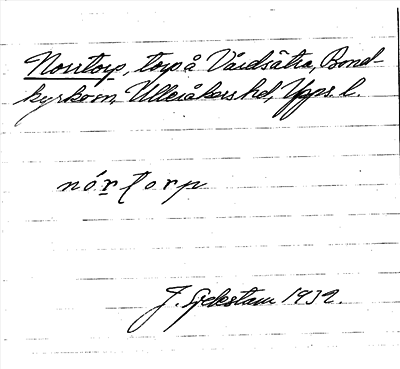 Norrtorp, torp å Vårdsätra, Bond-
kyrko sn, Ulleråkers hd, Upps. l.
nórtorp
J. Sydestam 1932.